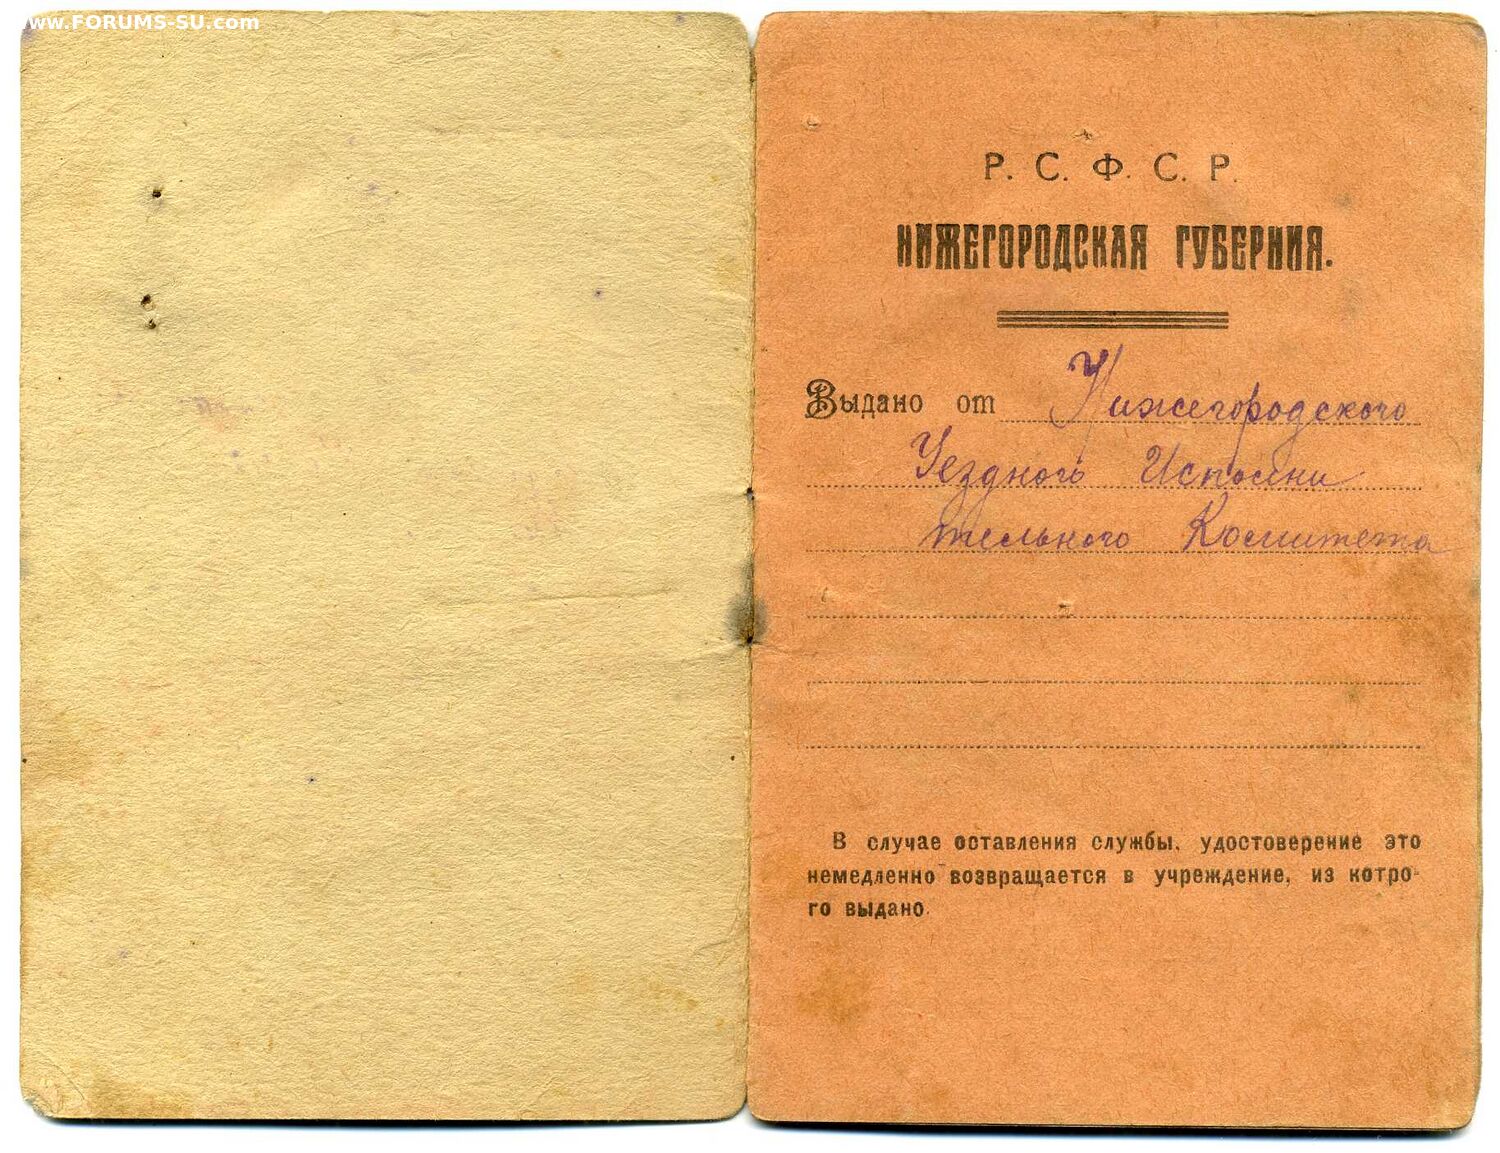 www.FORUMS-SU.com
Р. С. Ф. С. Р.
НИЖЕГОРОДСКАЯ ГУБЕРНИЯ.
Выдано от Нижегородского
Уездного Исполни
тельного Комитета
В случае оставления службы, удостоверение это
немедленно возвращается в учреждение, из котро-
го выдано.